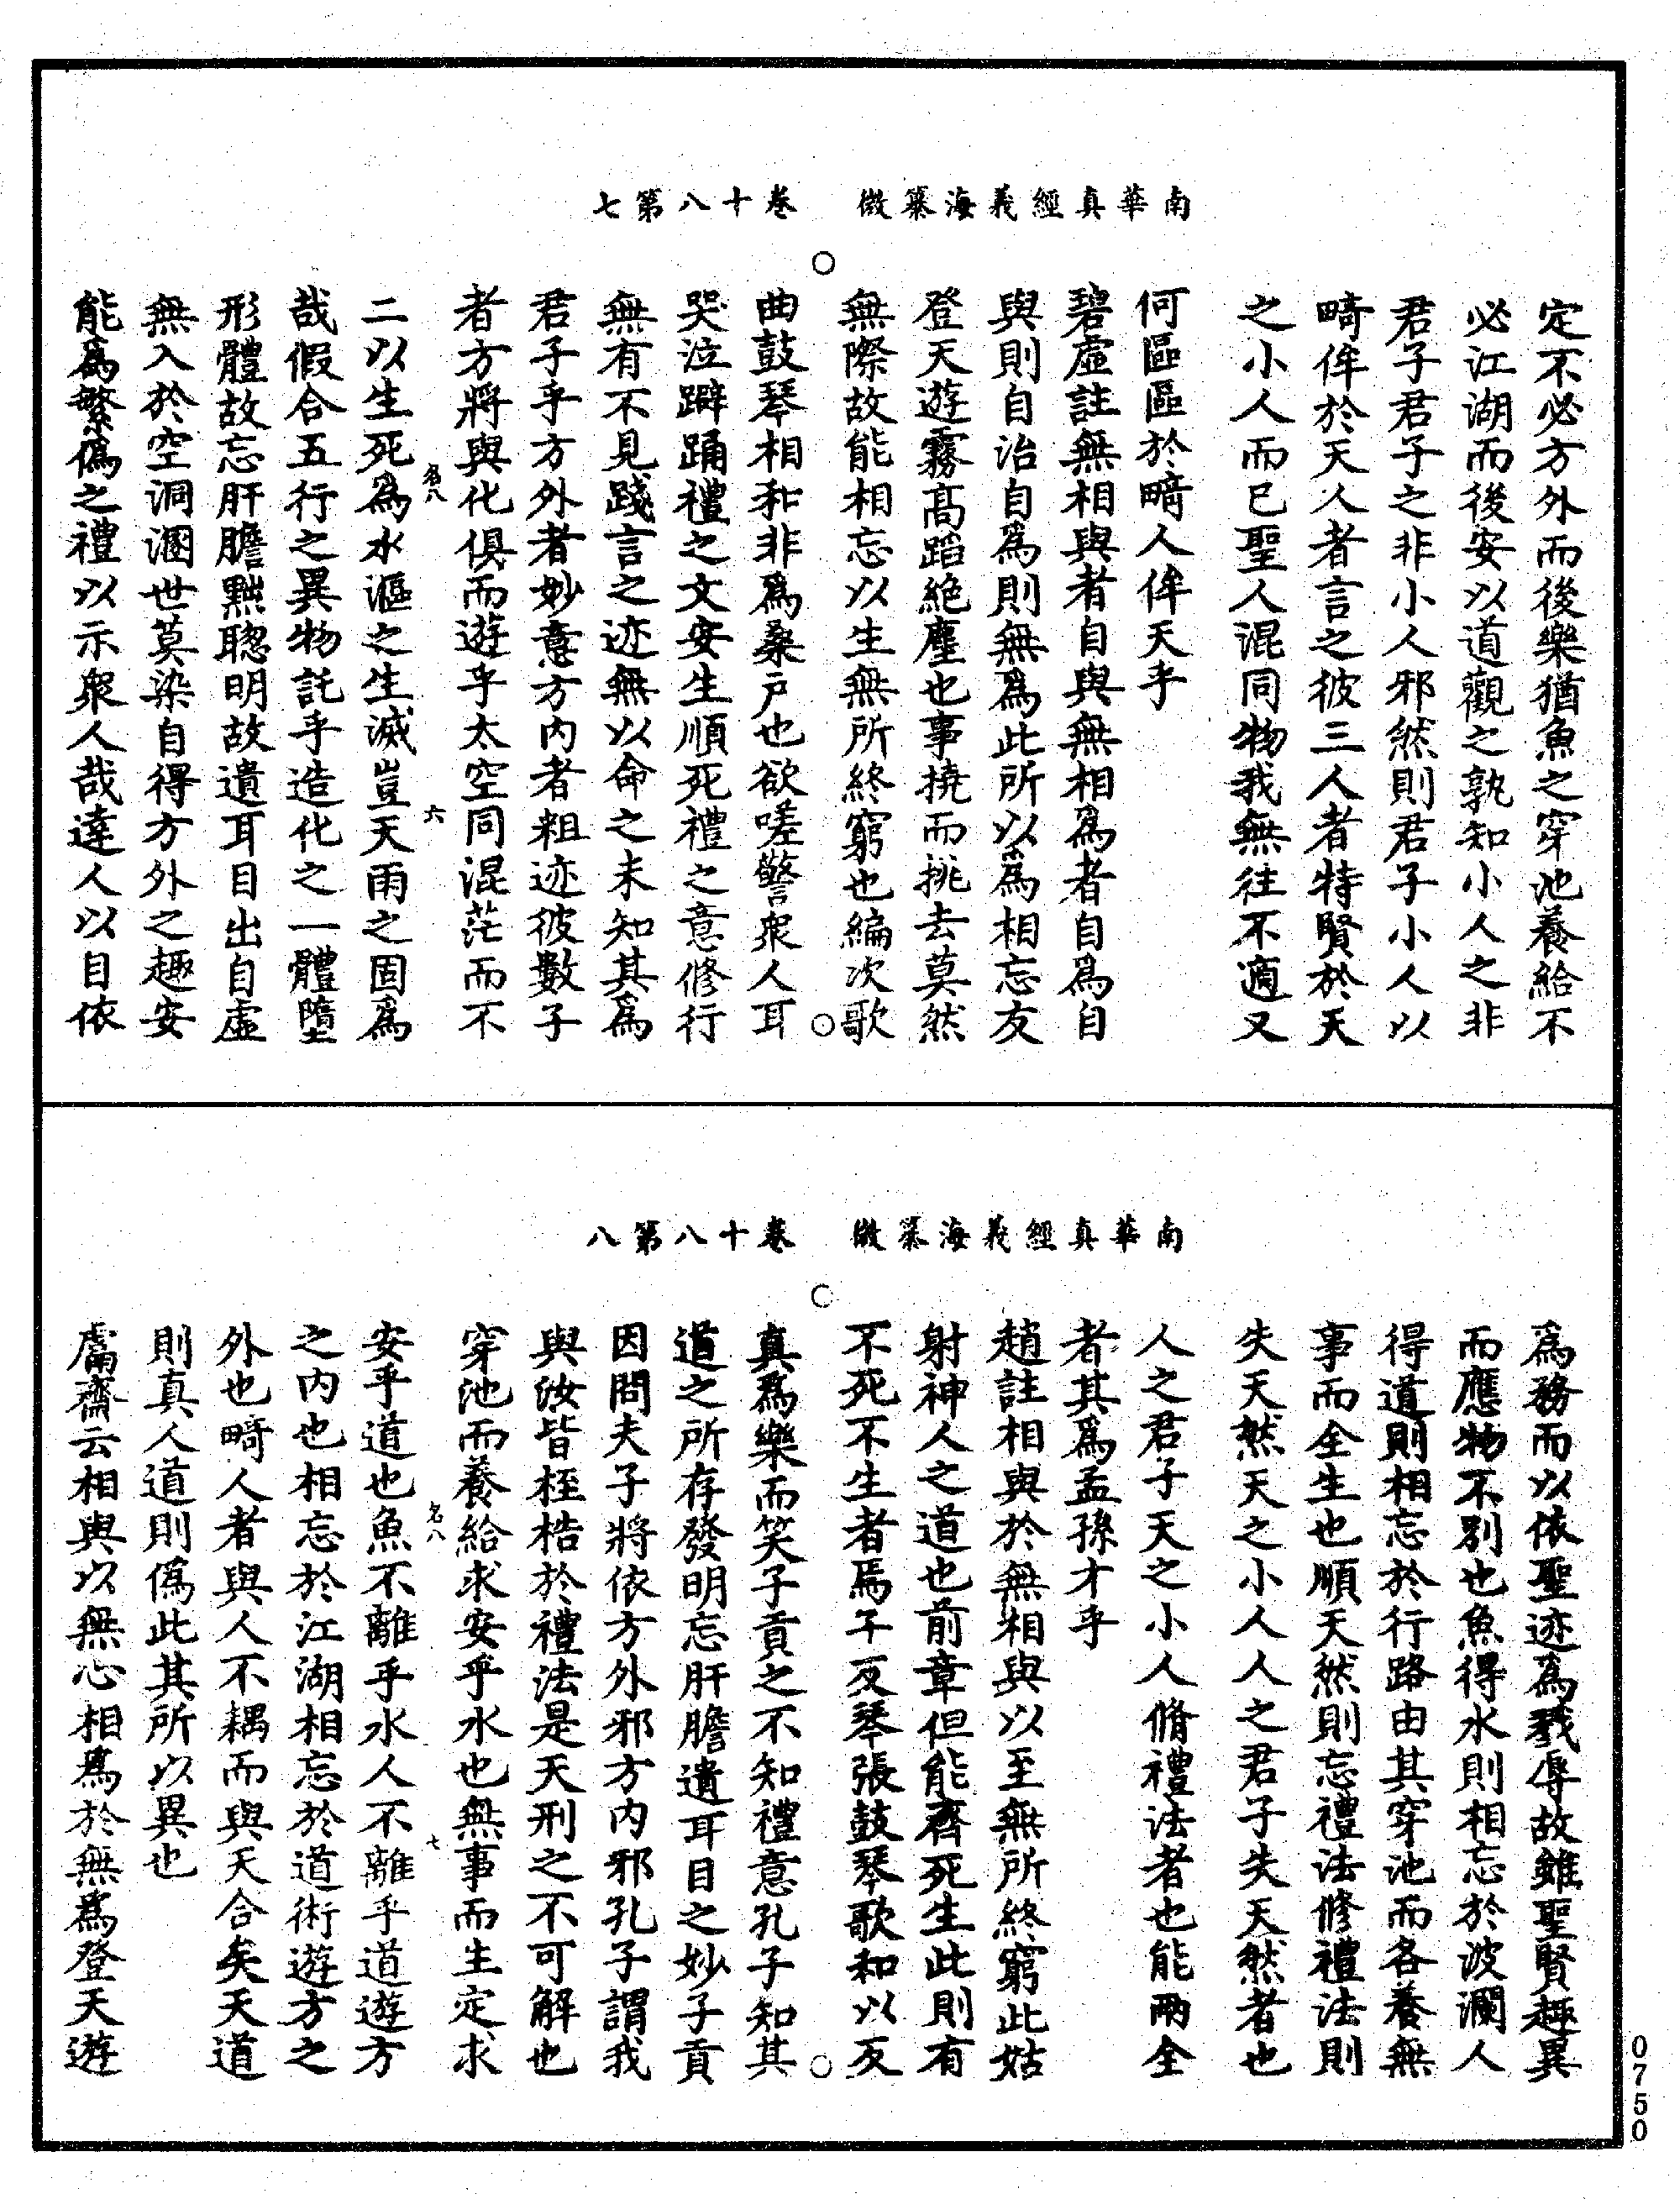 南華真經義海纂微　卷十八第七
定不必方外而後樂猶魚之穿池養給不
必江湖而後安以道觀之孰知小人之非
君子君子之非小人邪然則君子小人以
畸侔於天人者言之彼三人者特賢於天
之小人而已聖人混同物我無往不適又
何區區於畸人侔天乎
碧虛註無相與者自與無相為者自為自
與則自治自為則無為此所以為相忘友
登天遊霧高蹈絶塵也事撓而挑去莫然
無際故能相忘以生無所終窮也編次歌
曲鼓琴相和非為桑戶也欲嗟警衆人耳
哭泣躃踊禮之文安生順死禮之意修行
無有不見踐言之迹無以命之未知其為
君子乎方外者妙意方內者粗迹彼數子
者方將與化俱而遊乎太空同混茫而不
名八
六
二以生死為水漚之生滅豈天雨之固為
哉假合五行之異物託乎造化之一體墮
形體故忘肝膽黜聰明故遺耳目出自虛
無入於空洞溷世莫染自得方外之趣安
能為繁偽之禮以示衆人哉達人以目依
南華真經義海纂微　卷十八第八
為務而以依聖迹為戮辱故雖聖賢趣異
而應物不別也魚得水則相忘於波瀾人
得道則相忘於行路由其穿池而各養無
事而全生也順天然則忘禮法修禮法則
失天然天之小人人之君子失天然者也
人之君子天之小人脩禮法者也能兩全
者其為孟孫才乎
趙註相與於無相與以至無所終窮此姑
射神人之道也前章但能齊死生此則有
不死不生者焉乎反琴張鼓琴歌和以反
真為樂而笑子貢之不知禮意孔子知其
道之所存發明忘肝膽遺耳目之妙子貢
因問夫子將依方外邪方內邪孔子謂我
與汝皆桎梏於禮法是天刑之不可解也
穿池而養給求安乎水也無事而生定求
名八
七
安乎道也魚不離乎水人不離乎道遊方
之內也相忘於江湖相忘於道術遊方之
外也畸人者與人不耦而與天合矣天道
則真人道則偽此其所以異也
鬳齋云相與以無心相為於無為登天遊
0750